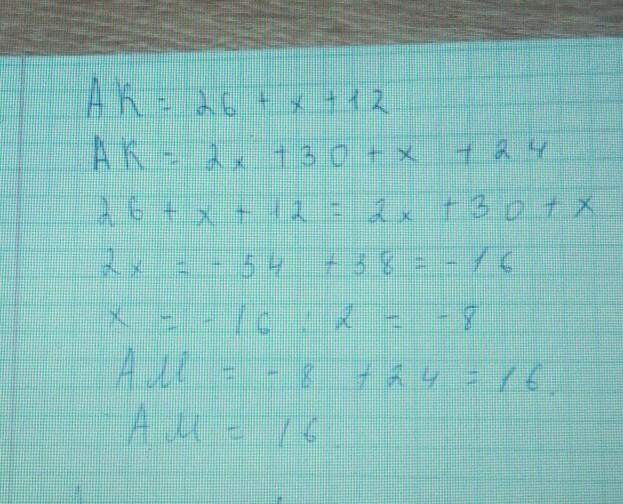 AK = 26 + x + 12
AK = 2x + 30 + x + 24
26 + x + 12 = 2x + 30 + x
2x = - 54 + 38 = - 16
x = - 16 : 2 = - 8
AM = - 8 + 24 = 16.
AM = 16